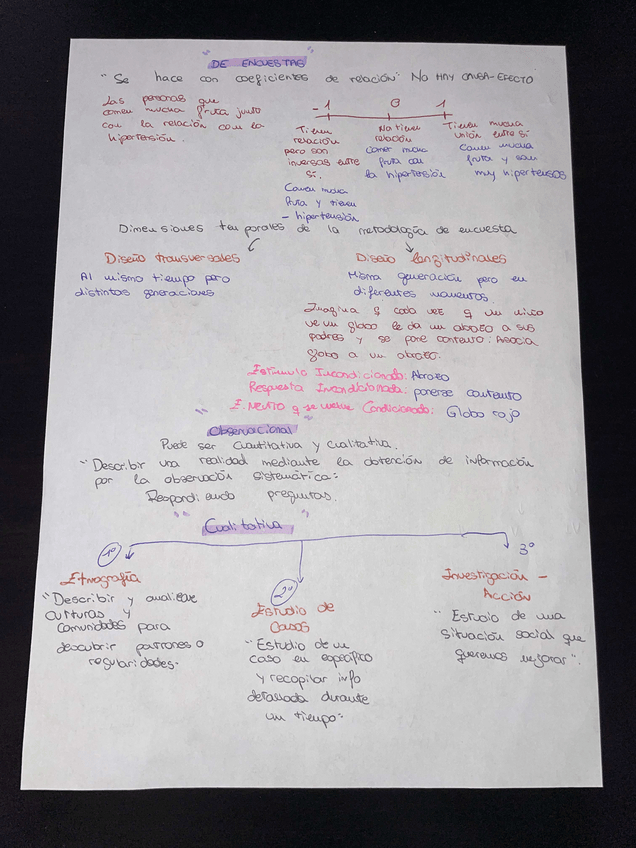 "DE ENCUESTAS"
"Se hace con coeficientes de relación" NO HAY CAUSA-EFECTO
Las personas que
comen mucha fruta junto
con la relación con la
hipertensión.
-1 0 1
Tienen
relación
pero son
inversas entre
sí.
Comen mucha
fruta y tienen
- hipertensión
No tienen
relación
Comer mucha
fruta con
la hipertensión
Tienen mucha
unión entre sí
Comen mucha
fruta y son
muy hipertensos
Dimensiones temporales de la metodología de encuesta
Diseño transversales
Al mismo tiempo pero
distintas generaciones
Diseño longitudinales
Misma generación pero en
diferentes momentos.
Imagina q cada vez q un niño
ve un globo le da un abrazo a sus
padres y se pone contento. Asocia
globo a un abrazo.
Estímulo Incondicionado: Abrazo
Respuesta Incondicionada: ponerse contento
E. Neutro q se vuelve Condicionado: Globo rojo
"Observacional"
Puede ser cuantitativa y cualitativa.
"Describir una realidad mediante la obtención de información
por la observación sistemática"
Respondiendo preguntas.
"Cualitativa"
1º
Etnografía
"Describir y analizar
culturas y
comunidades para
descubrir patrones o
regularidades"
2º
Estudio de
Casos
"Estudio de un
caso en específico
y recopilar info
detallada durante
un tiempo"
3º
Investigación -
Acción
"Estudio de una
situación social que
queremos mejorar".